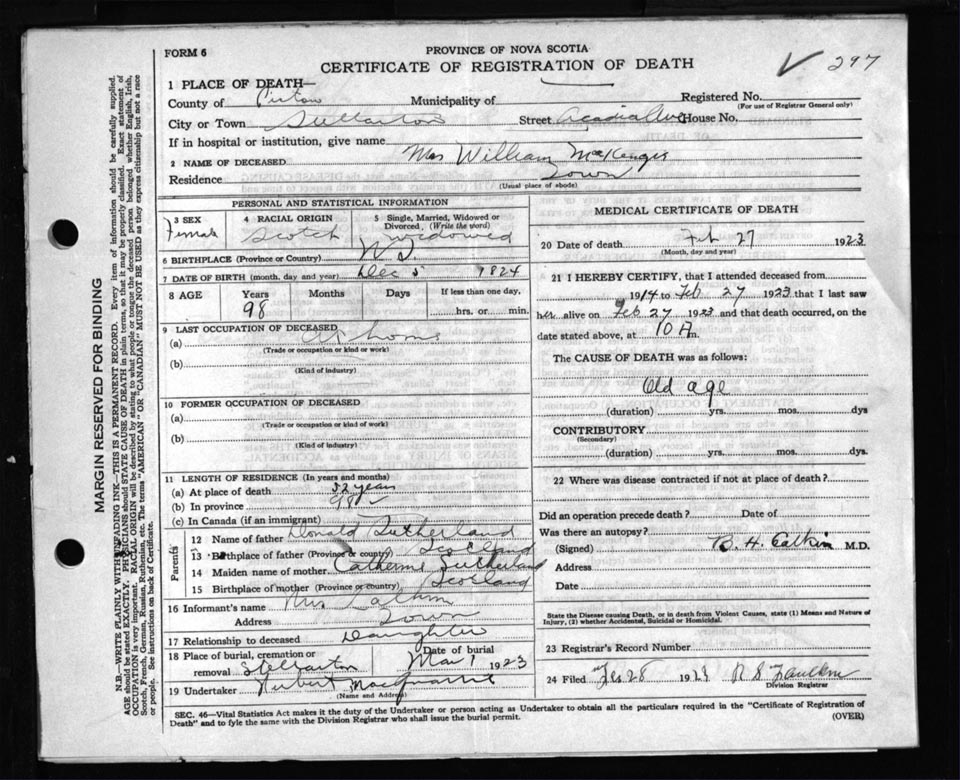 FORM 6
PROVINCE OF NOVA SCOTIA
CERTIFICATE OF REGISTRATION OF DEATH
297
1 PLACE OF DEATH—
County of Pictou Municipality of Registered No.
(For use of Registrar General only)
City or Town Stellarton Street Acadia Ave House No.
If in hospital or institution, give name
2 NAME OF DECEASED Mrs William MacKenzie
Residence Town
(Usual place of abode)
PERSONAL AND STATISTICAL INFORMATION
3 SEX
Female
4 RACIAL ORIGIN
Scotch
5 Single, Married, Widowed or
Divorced, (Write the word)
widowed
6 BIRTHPLACE (Province or Country) N S
7 DATE OF BIRTH (month, day and year) Dec 5 1824
8 AGE Years Months Days If less than one day,
98 hrs. or min.
9 LAST OCCUPATION OF DECEASED
(a) At home
(Trade or occupation or kind of work)
(b)
(Kind of industry)
10 FORMER OCCUPATION OF DECEASED
(a)
(Trade or occupation or kind of work)
(b)
(Kind of industry)
11 LENGTH OF RESIDENCE (In years and months)
(a) At place of death 52 years
(b) In province 98
(c) In Canada (if an immigrant)
Parents
12 Name of father Donald Sutherland
13 Birthplace of father (Province or country) Scotland
14 Maiden name of mother Catherine Sutherland
15 Birthplace of mother (Province or country) Scotland
16 Informant's name Mrs
Address Town
17 Relationship to deceased Daughter
18 Place of burial, cremation or
removal Stellarton
Date of burial
Mar 1 1923
19 Undertaker
(Name and Address)
MEDICAL CERTIFICATE OF DEATH
20 Date of death Feb 27 1923
(Month, day and year)
21 I HEREBY CERTIFY, that I attended deceased from
1914 to Feb 27 1923 that I last saw
her alive on Feb 27 1923 and that death occurred, on the
date stated above, at 10 A m.
The CAUSE OF DEATH was as follows:
Old age
(duration) yrs. mos. dys
CONTRIBUTORY
(Secondary)
(duration) yrs. mos. dys.
22 Where was disease contracted if not at place of death?
Did an operation precede death? Date of
Was there an autopsy?
(Signed) M.D.
Address
Date
State the Disease causing Death, or in death from Violent Causes, state (1) Means and Nature of
Injury, (2) whether Accidental, Suicidal or Homicidal.
23 Registrar's Record Number
24 Filed Feb 28 1923
Division Registrar
SEC. 46—Vital Statistics Act makes it the duty of the Undertaker or person acting as Undertaker to obtain all the particulars required in the "Certificate of Registration of
Death" and to fyle the same with the Division Registrar who shall issue the burial permit.
(OVER)
MARGIN RESERVED FOR BINDING
N.B.—WRITE PLAINLY WITH UNFADING INK—THIS IS A PERMANENT RECORD. Every item of information should be carefully supplied.
AGE should be stated EXACTLY. PHYSICIANS should STATE CAUSE OF DEATH in plain terms, so that it may be properly classified. Exact statement of
OCCUPATION is very important. RACIAL ORIGIN will be described by stating to what people or tongue the deceased person belonged whether English, Irish,
Scotch, French, German, Russian, Ruthenian, etc. The terms "AMERICAN" OR "CANADIAN" MUST NOT BE USED as they express citizenship but not a race
or people. See instructions on back of Certificate.